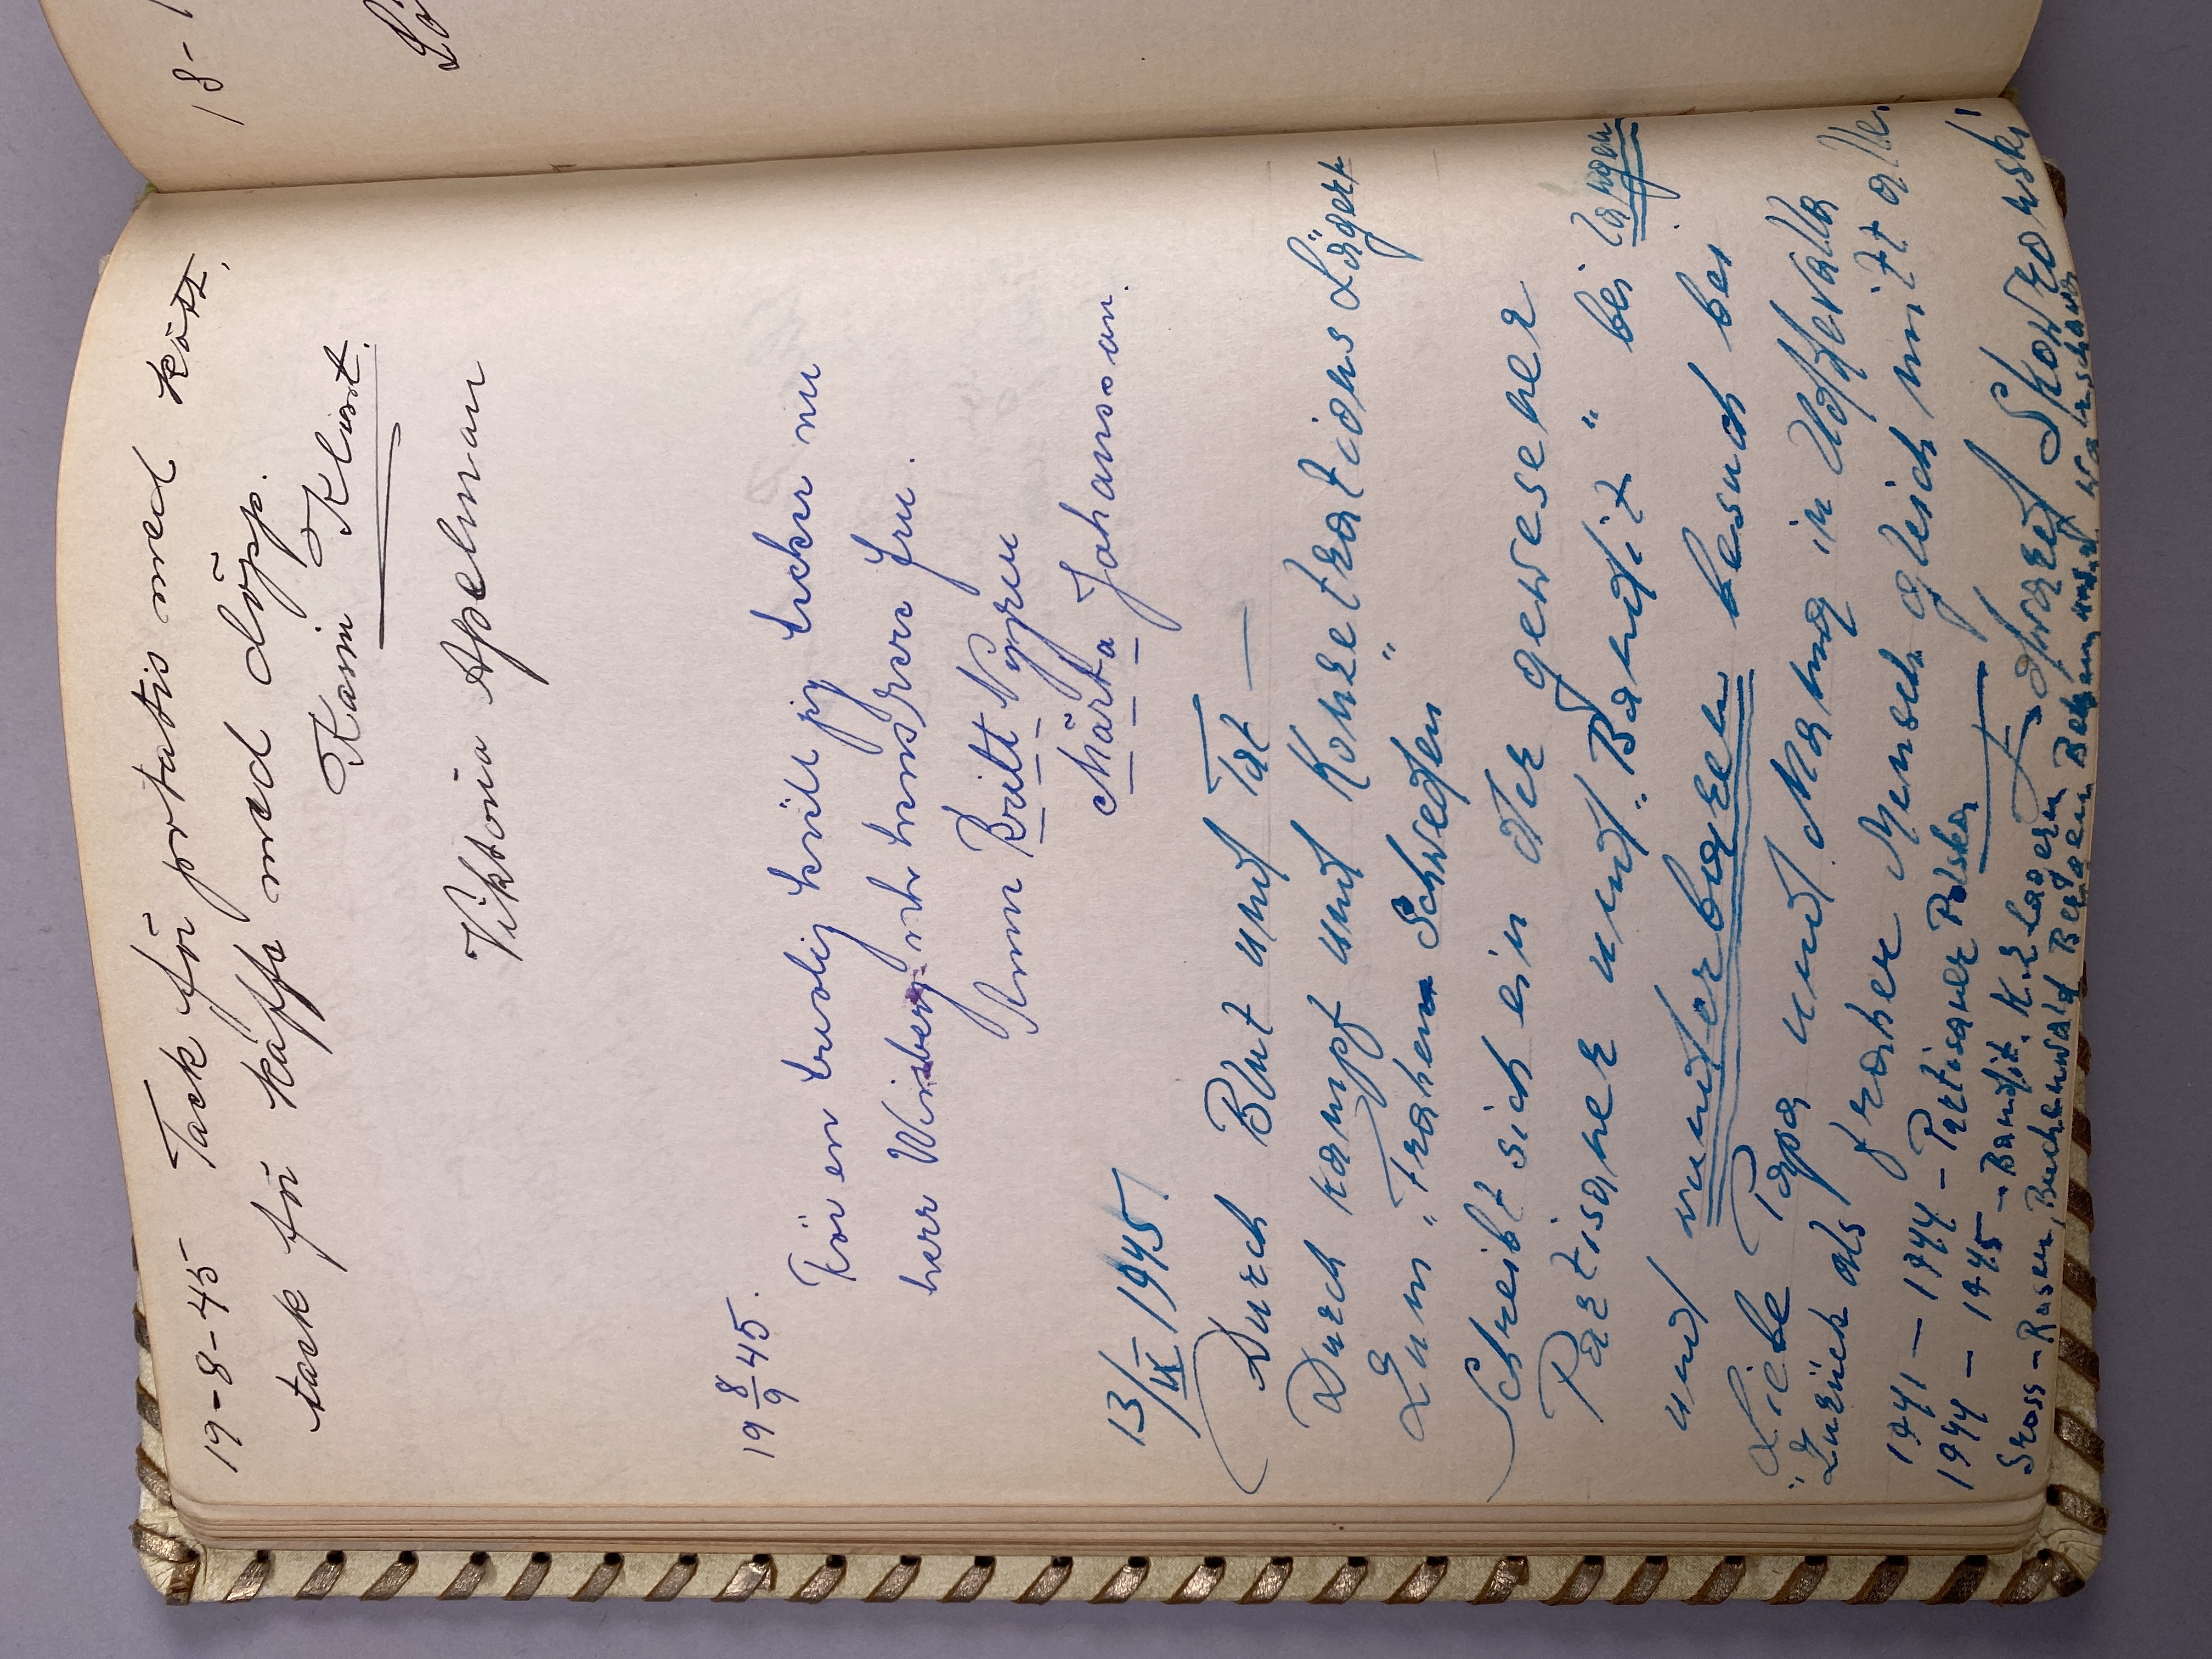 19-8-45 Tack för potatis med kött,
tack för kaffe med dopp.
Karin Klint.
Viktoria Apelman
19 8/9 45.
För en trevlig kväll jag tackar nu
herr Wisberg och hans kära fru.
Britt Nyren
Märta Johansson.
13/IX 1945
Durch Blut und Tat —
Durch kampf und Konzetrations Lägern
Zum "Frahem" Schweden
Schreibt sich ein der gewesener
Partisaner und "Bandit" bei langen
und wunderbaren besuch bei
Liebe Papa und Mama in Uddevalla
Zurück als froher Mensch gleich mit alle.
1941 — 1944 — Partisaner Polska
1944 — 1945 — Bandit K.z Lagern
Gross-Rosen, Buchenwald Bergen Belsen und
Skowronski
18-